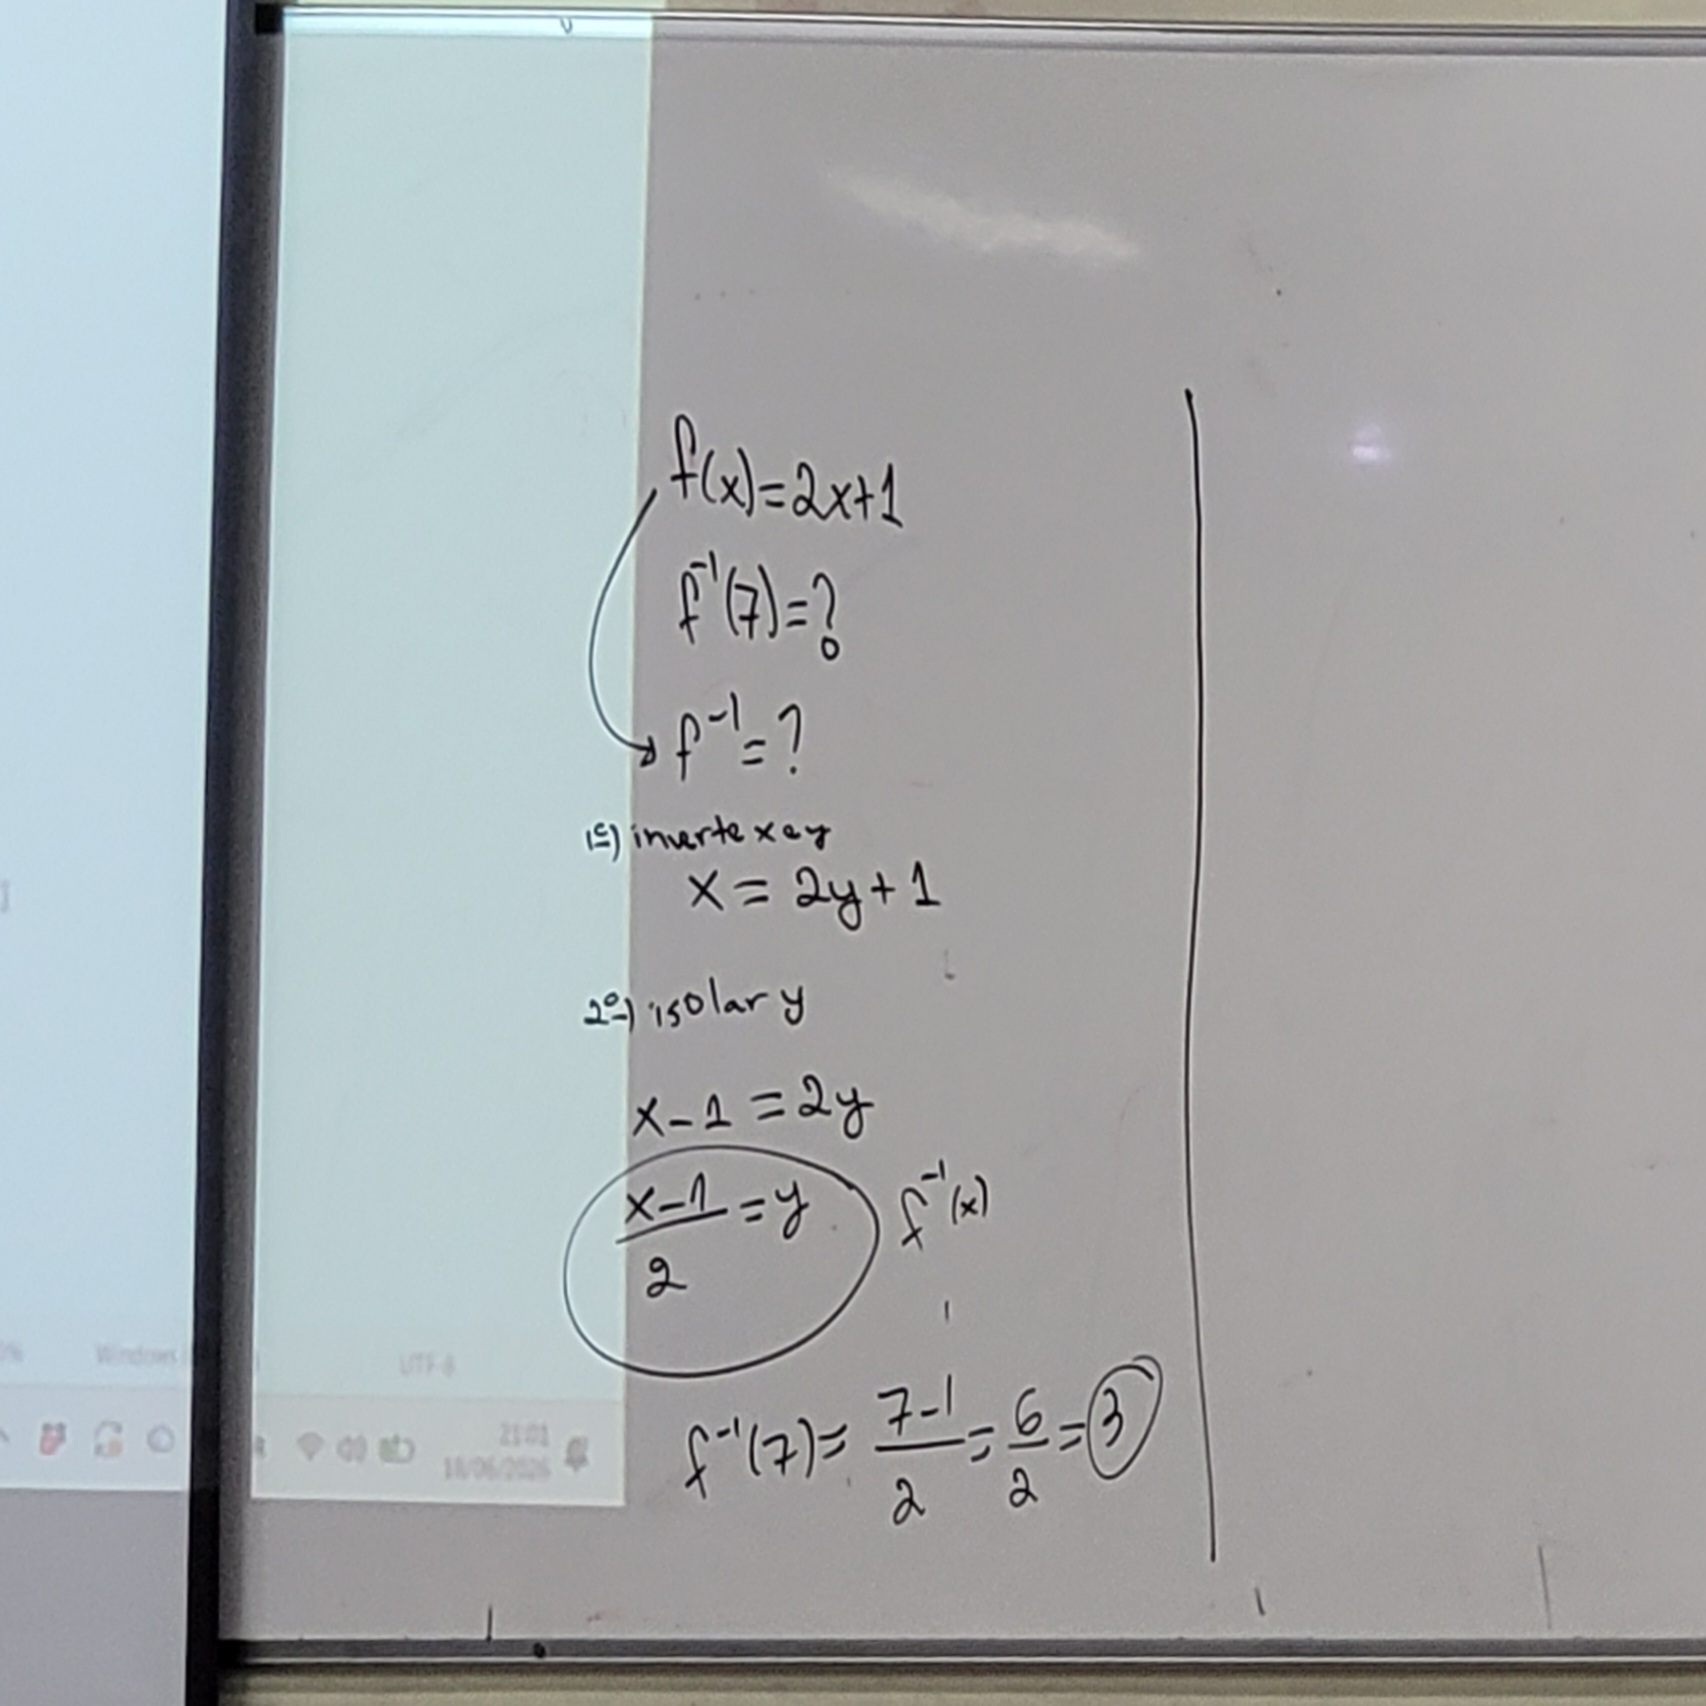 f(x)=2x+1
f⁻¹(7)=?
f⁻¹=?
1º) inverte x e y
x = 2y + 1
2º) isolar y
x - 1 = 2y
(x-1)/2 = y f⁻¹(x)
f⁻¹(7) = (7-1)/2 = 6/2 = 3
Windows
UTF-8
21:01
18/06/2026